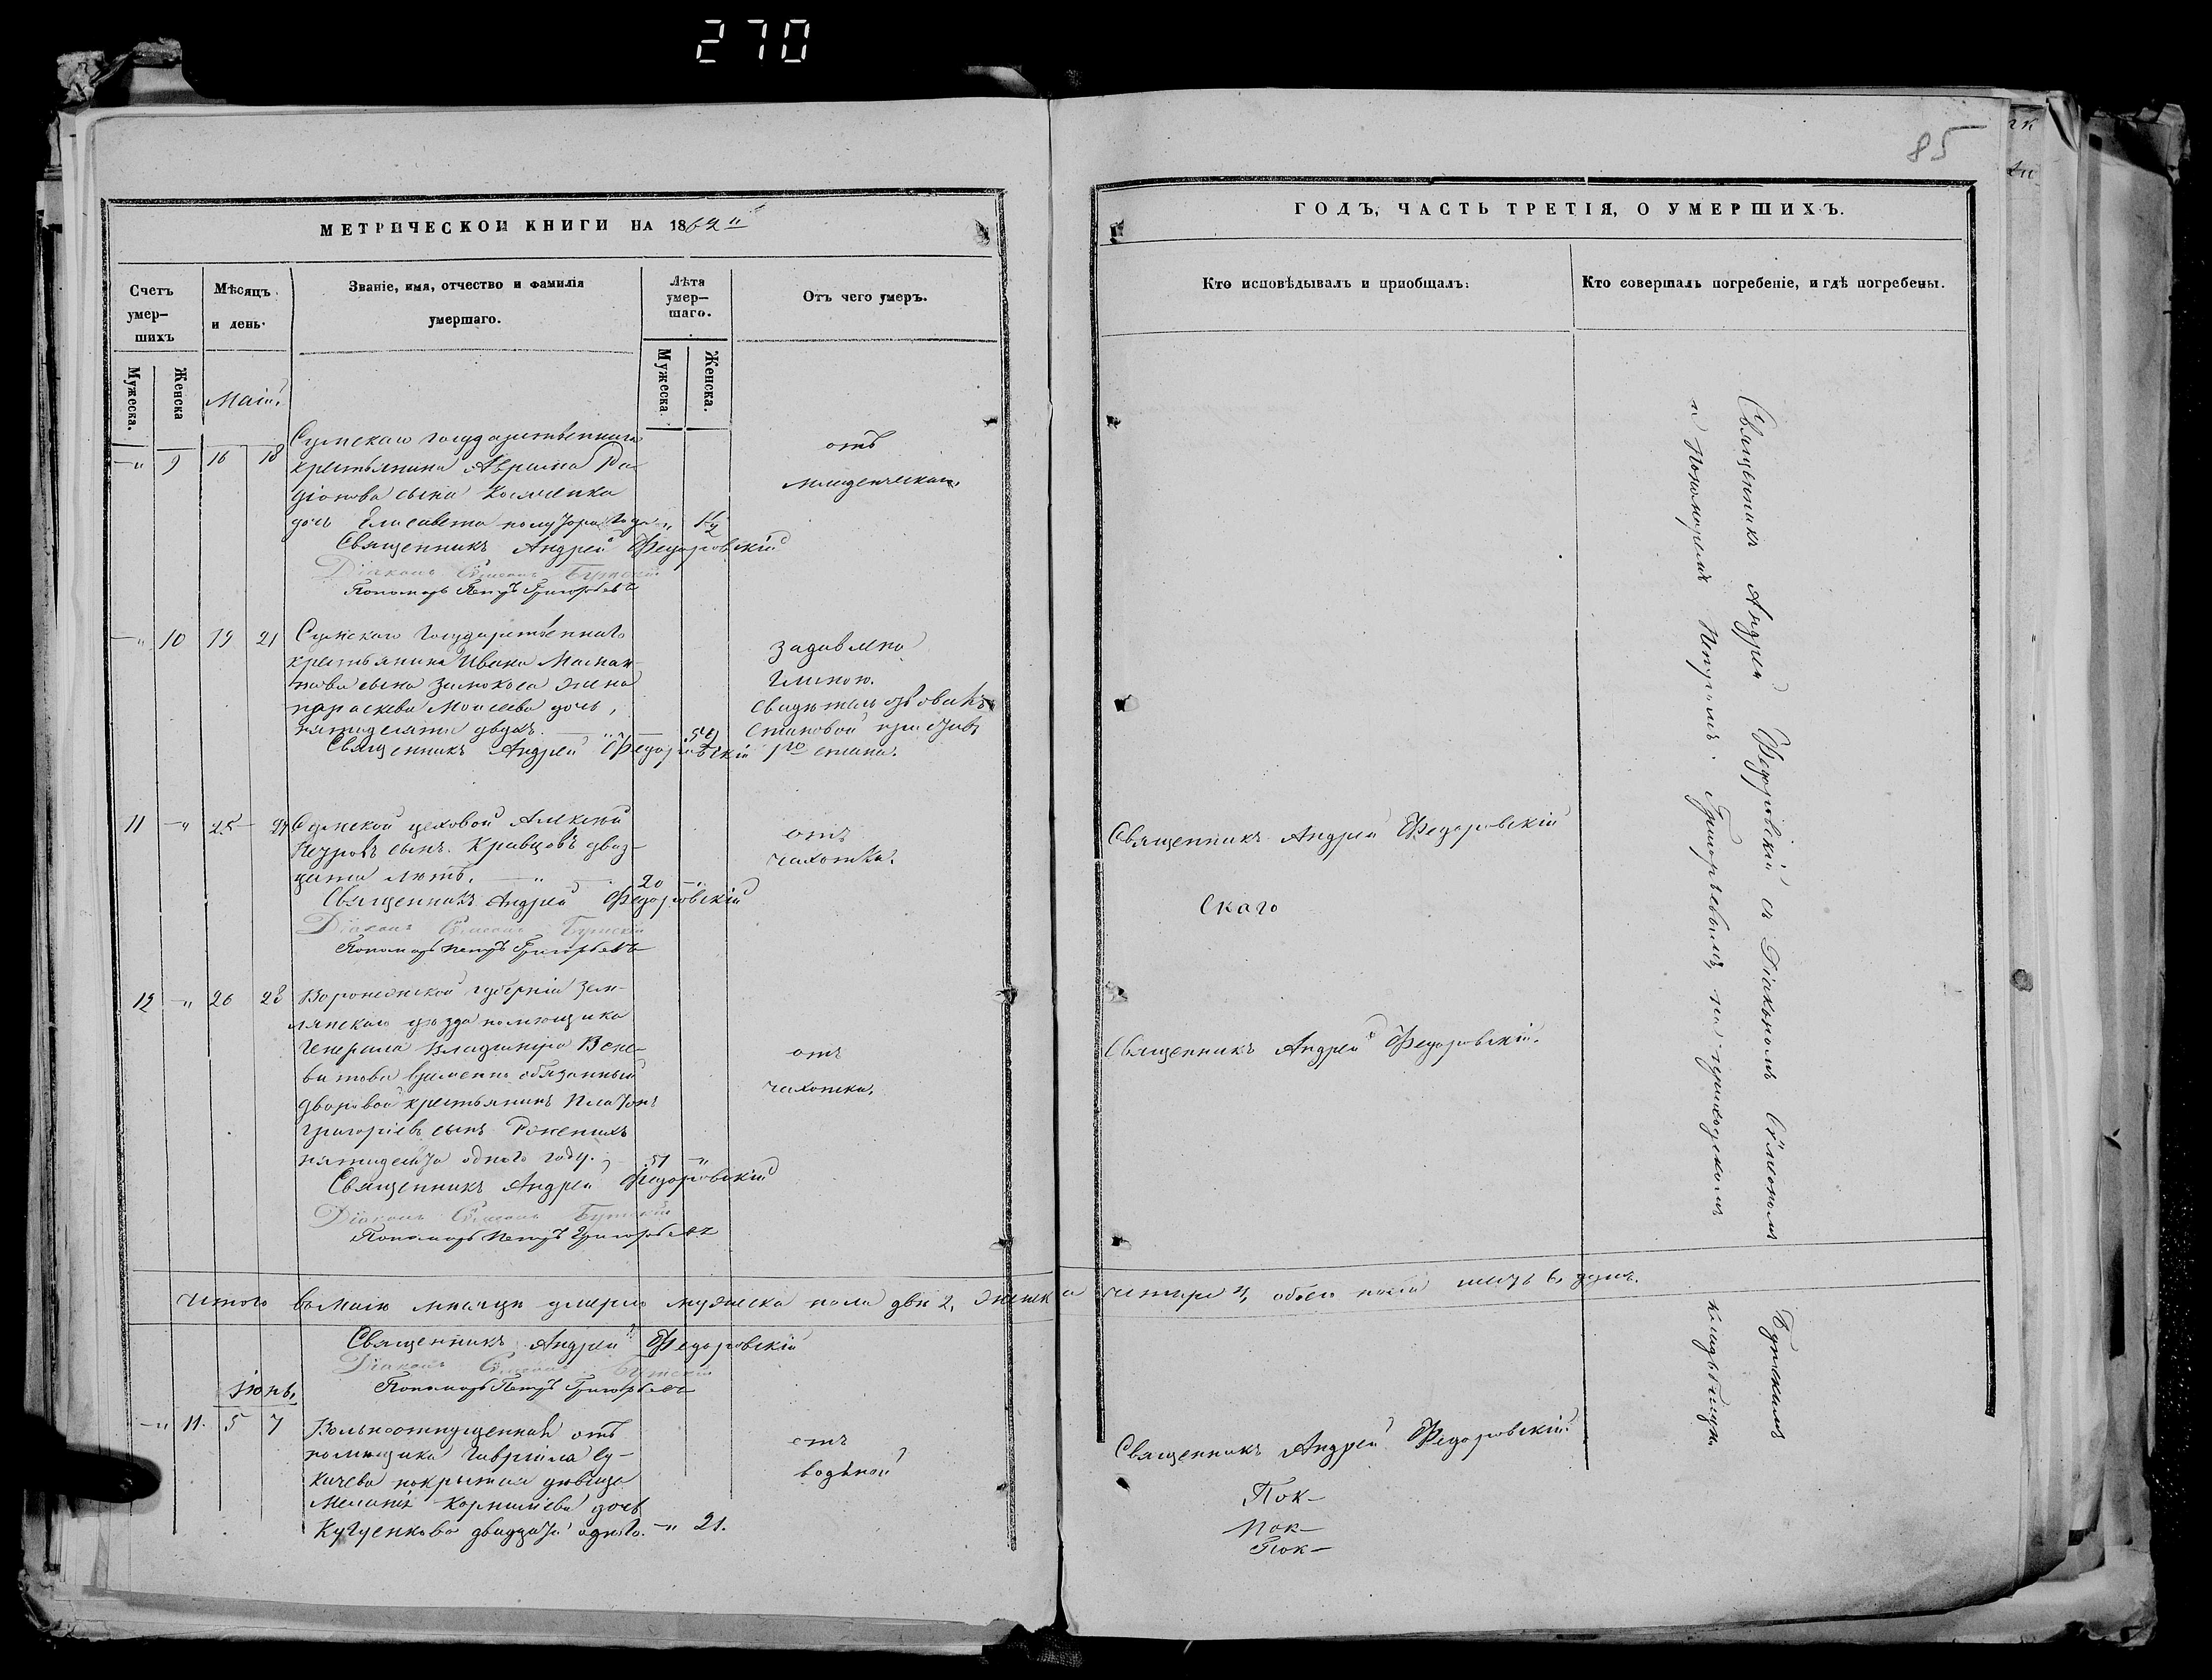 270
85
МЕТРИЧЕСКОЙ КНИГИ НА 1862й
Счетъ умер-шихъ
Мѣсяцъ и день.
Званіе, имя, отчество и фамилія умершаго.
Лѣта умер-шаго.
Отъ чего умеръ.
Мужеска.
Женска
Мужеска.
Женска.
Маій.
Сумскаго государственнаго
" 9 16 18 крестьянина Аврама Ра-
діонова сына
дочь Елисавета полутора года " 1 1/2
отъ
младенческой.
Священникъ Андрей Федоровскій
Діаконъ Сімеонъ
Пономарь Петръ Григорьевъ
" 10 19 21 Сумскаго государственнаго
крестьянина Ивана
сына жена
параскева Моисеева дочь,
пятидесяти двухъ. " 52
задавлена
глиною.
Становой приставъ
1го стана.
Священникъ Андрей Федоровскій
11 " 25 27 Сумской цеховой Алексій
Петровъ сынъ Кравцовъ двад-
цати лѣтъ. " 20 "
отъ
чахотки.
Священникъ Андрей Федоровскій
Діаконъ Сімеонъ
Пономарь Петръ Григорьевъ
12 " 26 28 Воронежской губерніи Зем-
лянскаго уѣзда помѣщика
Генерала Владиміра Вене-
витова временно обязанный
дворовой крестьянинъ Платонъ
Григоріевъ сынъ
пятидесяти одного году. 51 "
отъ
чахотки.
Священникъ Андрей Федоровскій
Діаконъ Сімеонъ
Пономарь Петръ Григорьевъ
Итого въ Маіи мѣсяцѣ умерло мужеска пола два 2, женска четыре 4, обоего пола шесть 6 душъ.
Священникъ Андрей Федоровскій
Діаконъ Сімеонъ
Пономарь Петръ Григорьевъ
Іюнь,
" 11. 5 7 Вольноотпущенная отъ
помѣщика Гавріила Су-
качева покрытая дѣвица
Меланія Корниліева дочь
двадцати одного. " 21.
отъ
водяной
ГОДЪ, ЧАСТЬ ТРЕТІЯ, О УМЕРШИХЪ.
Кто исповѣдывалъ и пріобщалъ:
Кто совершалъ погребеніе, и гдѣ погребены.
Священникъ Андрей Федоровскій
скаго
Священникъ Андрей Федоровскій.
Священникъ Андрей Федоровскій.
Пок-
Пок-
Пок-
Священникъ Андрей Федоровскій съ Діакономъ Сімеономъ
и Пономаремъ Петромъ Григорьевымъ, на приходскомъ
кладбищѣ